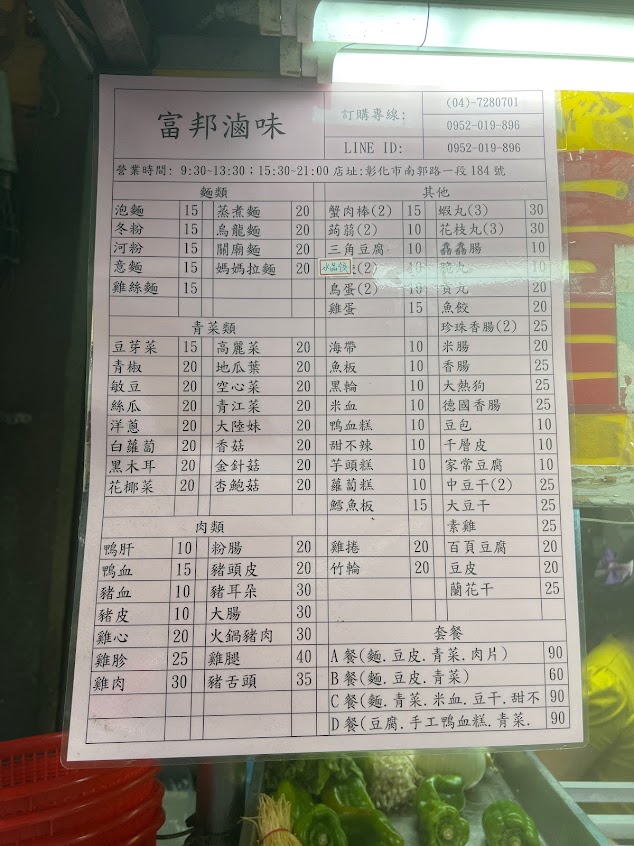 富邦滷味
訂購專線: (04)-7280701
0952-019-896
LINE ID: 0952-019-896
營業時間: 9:30~13:30；15:30~21:00 店址:彰化市南郭路一段184號
麵類
泡麵 15 蒸煮麵 20
冬粉 15 烏龍麵 20
河粉 15 關廟麵 20
意麵 15 媽媽拉麵 20
雞絲麵 15
青菜類
豆芽菜 15 高麗菜 20
青椒 20 地瓜葉 20
敏豆 20 空心菜 20
絲瓜 20 青江菜 20
洋蔥 20 大陸妹 20
白蘿蔔 20 香菇 20
黑木耳 20 金針菇 20
花椰菜 20 杏鮑菇 20
肉類
鴨肝 10 粉腸 20
鴨血 15 豬頭皮 20
豬血 10 豬耳朵 30
豬皮 10 大腸 30
雞心 20 火鍋豬肉 30
雞胗 25 雞腿 40
雞肉 30 豬舌頭 35
其他
蟹肉棒(2) 15 蝦丸(3) 30
蒟蒻(2) 10 花枝丸(3) 30
三角豆腐 10 鑫鑫腸 10
水晶餃 (2) 10 丸 10
鳥蛋(2) 10 貢丸 20
雞蛋 15 魚餃 20
珍珠香腸(2) 25
海帶 10 米腸 20
魚板 10 香腸 25
黑輪 10 大熱狗 25
米血 10 德國香腸 25
鴨血糕 10 豆包 10
甜不辣 10 千層皮 10
芋頭糕 10 家常豆腐 10
蘿蔔糕 10 中豆干(2) 25
鱈魚板 15 大豆干 25
素雞 25
雞捲 20 百頁豆腐 20
竹輪 20 豆皮 20
蘭花干 25
套餐
A餐(麵.豆皮.青菜.肉片) 90
B餐(麵.豆皮.青菜) 60
C餐(麵.青菜.米血.豆干.甜不 90
D餐(豆腐.手工鴨血糕.青菜. 90